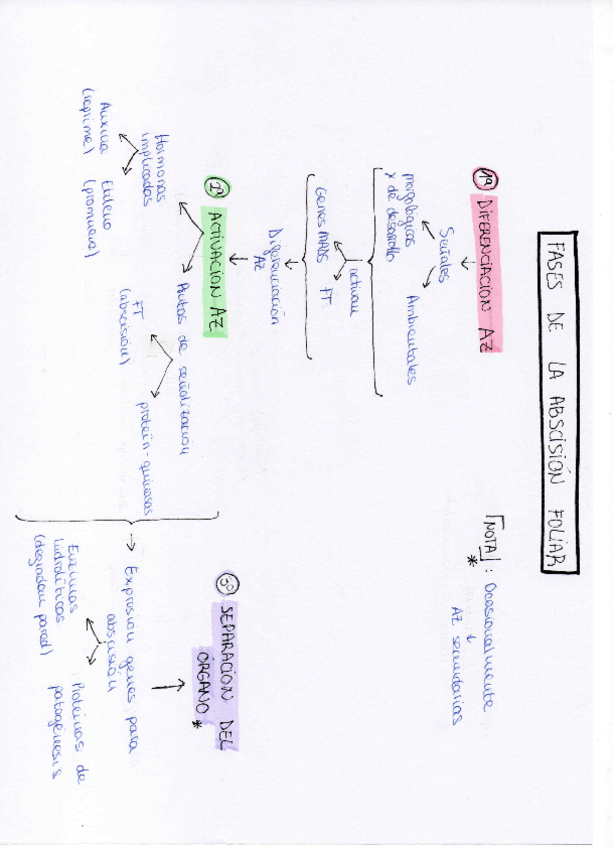 FASES DE LA ABSCISIÓN FOLIAR
1º DIFERENCIACIÓN AZ
Señales
morfológicas
x de desarrollo
Ambientales
activan
Genes MADS
FT
Diferenciación
AZ
2º ACTIVACIÓN AZ
Hormonas
implicadas
Auxina
(reprime)
Etileno
(promueve)
Rutas de señalización
FT
(abscisión)
protein-quinasas
Expresión genes para
abscisión
Enzimas
hidrolíticas
(degradan pared)
Proteínas de
patogénesis
3º SEPARACIÓN DEL
ÓRGANO *
NOTA * : Ocasionalmente
AZ secundarias